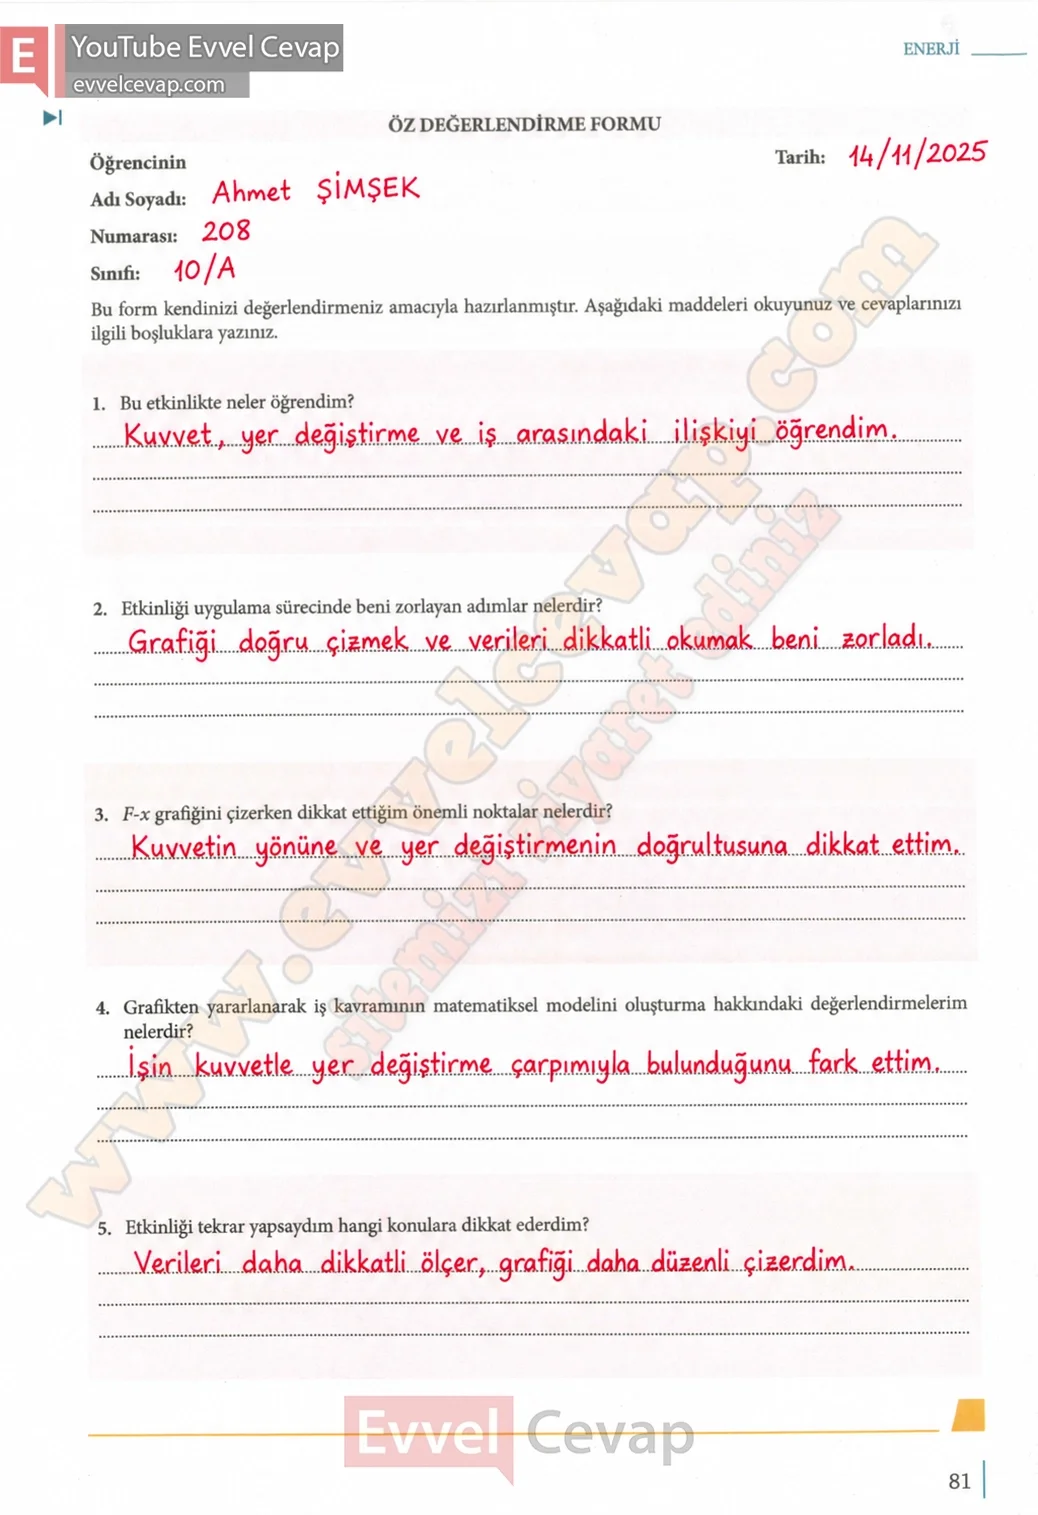 E YouTube Evvel Cevap
evvelcevap.com
ENERJİ
ÖZ DEĞERLENDİRME FORMU
Öğrencinin
Tarih: 14/11/2025
Adı Soyadı: Ahmet ŞİMŞEK
Numarası: 208
Sınıfı: 10/A
Bu form kendinizi değerlendirmeniz amacıyla hazırlanmıştır. Aşağıdaki maddeleri okuyunuz ve cevaplarınızı
ilgili boşluklara yazınız.
1. Bu etkinlikte neler öğrendim?
Kuvvet, yer değiştirme ve iş arasındaki ilişkiyi öğrendim.
2. Etkinliği uygulama sürecinde beni zorlayan adımlar nelerdir?
Grafiği doğru çizmek ve verileri dikkatli okumak beni zorladı.
3. F-x grafiğini çizerken dikkat ettiğim önemli noktalar nelerdir?
Kuvvetin yönüne ve yer değiştirmenin doğrultusuna dikkat ettim.
4. Grafikten yararlanarak iş kavramının matematiksel modelini oluşturma hakkındaki değerlendirmelerim
nelerdir?
İşin kuvvetle yer değiştirme çarpımıyla bulunduğunu fark ettim.
5. Etkinliği tekrar yapsaydım hangi konulara dikkat ederdim?
Verileri daha dikkatli ölçer, grafiği daha düzenli çizerdim.
www.evvelcevap.com
sitemizi ziyaret ediniz
Evvel Cevap
81